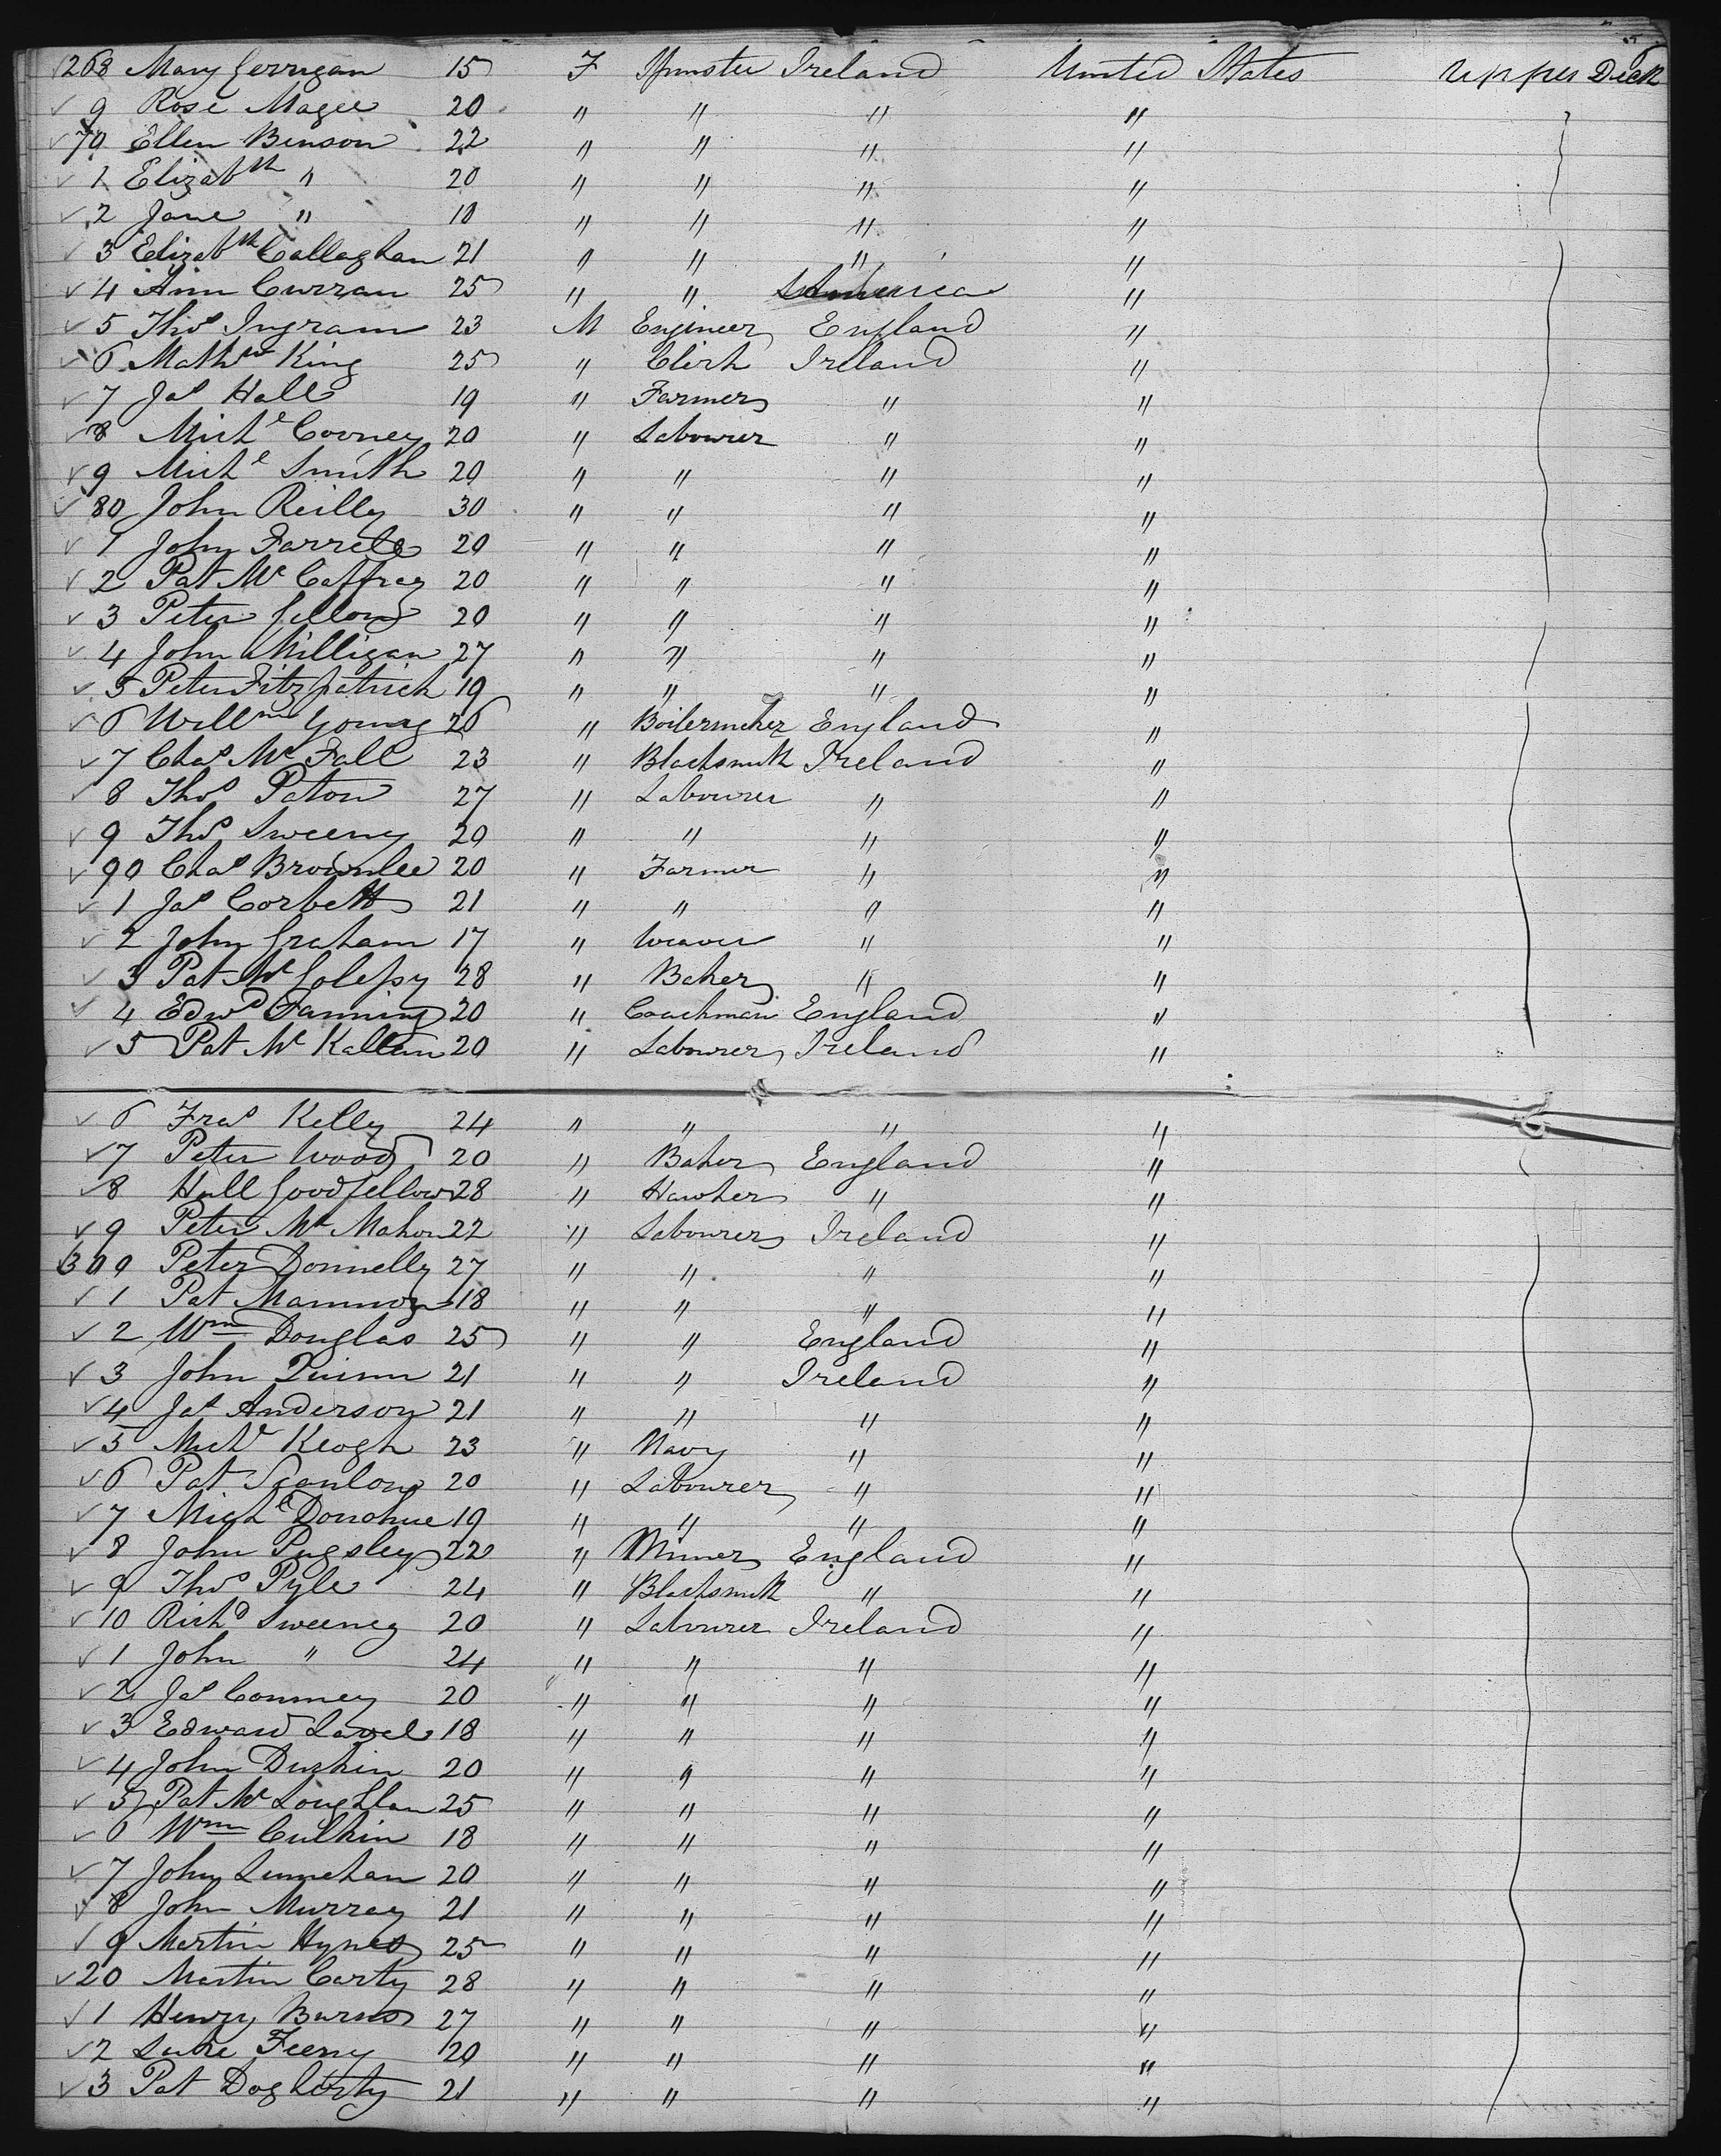 268 Mary Gerrigan 15 F Spinster Ireland United States Upper Deck
9 Rose Magee 20 " " " "
70 Ellen Benson 22 " " " "
1 Elizabth " 20 " " " "
2 Jane " 18 " " " "
3 Elizabth Callaghan 21 " " " "
4 Ann Curran 25 " " America "
5 Thos Ingram 23 M Engineer England "
6 Mathw King 25 " Clerk Ireland "
7 Jas Hall 19 " Farmer " "
8 Michl Cooney 20 " Labourer " "
9 Michl Smith 20 " " " "
80 John Reilly 30 " " " "
1 John Farrell 20 " " " "
2 Pat McCaffray 20 " " " "
3 Peter 20 " " " "
4 John Milligan 27 " " " "
5 Peter Fitzpatrick 19 " " " "
6 Willm Young 26 " Boilermaker England "
7 Chas McFall 23 " Blacksmith Ireland "
8 Thos Paton 27 " Labourer " "
9 Thos Sweeny 20 " " " "
90 Chas Brownlee 20 " Farmer " "
1 Jas Corbett 21 " " " "
2 John Graham 17 " Weaver " "
3 Pat Mc 28 " Baker " "
4 Edwd Fanning 20 " Coachman England "
5 Pat McKallan 20 " Labourer Ireland "
6 Fras Kelly 24 " " " "
7 Peter Wood 20 " Baker England "
8 Hall Goodfellow 28 " Hawker " "
9 Peter McMahon 22 " Labourer Ireland "
300 Peter Donnelly 27 " " " "
1 Pat 18 " " " "
2 Wm Douglas 25 " " England "
3 John Quinn 21 " " Ireland "
4 Jas Anderson 21 " " " "
5 Michl Keogh 23 " Navy " "
6 Pat Scanlon 20 " Labourer " "
7 Michl Donohue 19 " " " "
8 John Pugsley 22 " Miner England "
9 Thos Pyle 24 " Blacksmith " "
10 Richd Sweeney 20 " Labourer Ireland "
1 John " 24 " " " "
2 Jas Conmey 20 " " " "
3 Edward Lavel 18 " " " "
4 John Durkin 20 " " " "
5 Pat McLoughlan 25 " " " "
6 Wm Culkin 18 " " " "
7 John Linnehan 20 " " " "
8 John Murray 21 " " " "
9 Martin Hynes 25 " " " "
20 Martin Carty 28 " " " "
1 Henry Burns 27 " " " "
2 Luke Feeny 20 " " " "
3 Pat Dogherty 21 " " " "